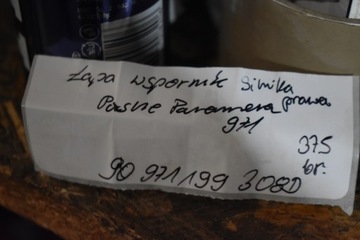 Łapa wspornik Silnika
Porsche Panamera prawa
971
375
br.
90 971 199 308D